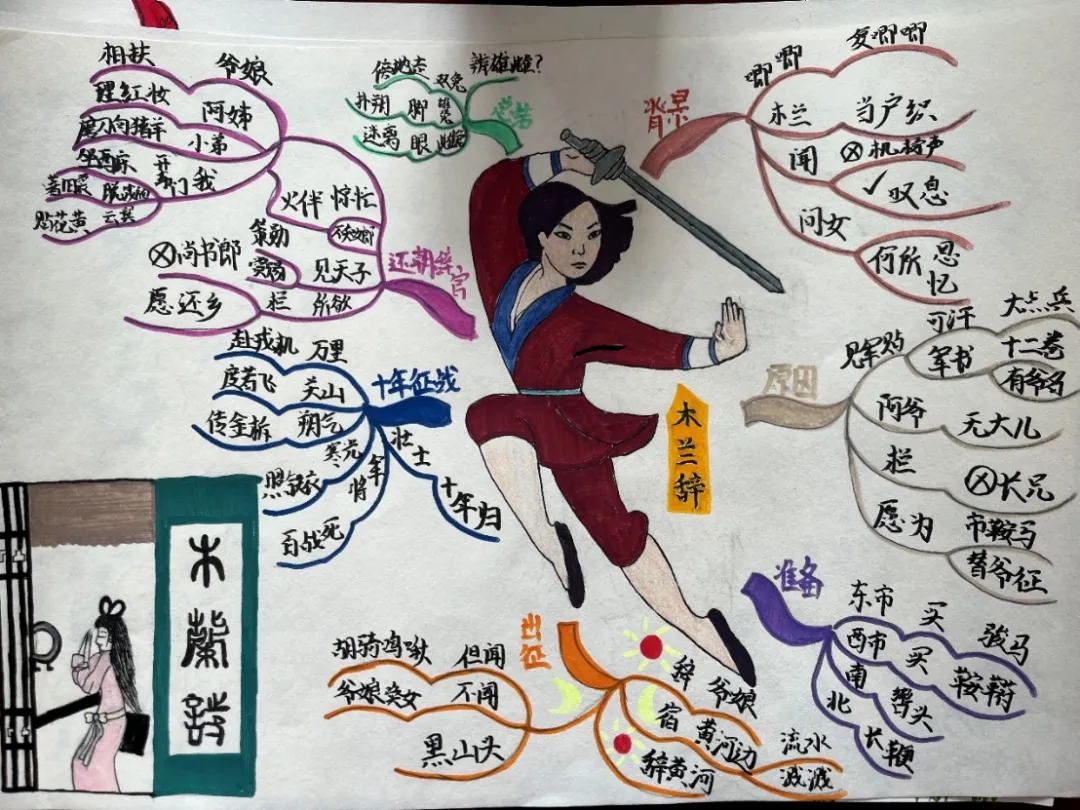 木兰辞
木蘭詩
背景
唧唧
复唧唧
木兰
当户织
闻
机杼声
叹息
问女
何所
思
忆
原因
见军贴
可汗
大点兵
军书
十二卷
有爷名
阿爷
无大儿
栏
长兄
愿为
市鞍马
替爷征
准备
东市
买
骏马
西市
买
鞍鞯
南
辔头
北
长鞭
出征
辞
爷娘
宿
黄河边
流水
溅溅
辞黄河
黑山头
不闻
爷娘唤女
但闻
胡骑鸣啾
十年征战
万里
赴戎机
关山
度若飞
朔气
传金柝
寒光
照铁衣
将军
百战死
壮士
十年归
还朝辞官
见天子
策勋
赏赐
所欲
栏
尚书郎
愿还乡
爷娘
相扶
阿姊
理红妆
小弟
磨刀向猪羊
我
开
门
坐西床
脱战袍
著旧裳
云鬓
贴花黄
火伴
惊忙
总结
双兔
傍地走
脚
扑朔
眼
迷离
辨雄雌?